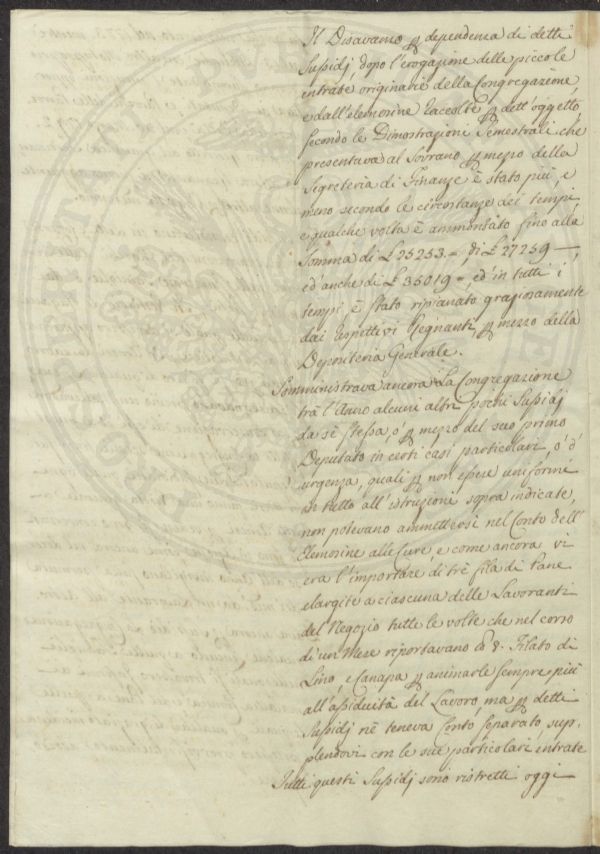 Il Disavanzo p dependenza di detti
Sussidj, dopo l'erogazione delle piccole
entrate originarie della Congregazione,
e dall'elemosine raccolte p dett'oggetto,
secondo le Dimostrazioni Semestrali, che
presentava al Sovrano p mezzo della
Segreteria di Finanze è stato più, e
meno secondo le circostanze dei tempi,
e qualche volta è ammontato fino alla
Somma di £ 25253.-, di £ 27259-
ed anche di £ 35019- ed in tutti i
tempi è stato ripianato graziosamente
dai respettivi Regnanti, p mezzo della
Depositeria Generale.
Somministrava ancora La Congregazione
trà l'Anno alcuni altri pochi Sussidj
da sè stessa, ó p mezzo del suo primo
Deputato in certi casi particolari, ó d'
urgenza, quali p non essere uniformi
in tutto all'istruzioni sopra indicate,
non potevano ammettersi nel Conto dell'
Elemosine alle Cure, e come ancora vi
era l'importare di trè fila di Pane
elargite a ciascuna delle Lavoranti
del Negozio tutte le volte che nel corso
d'un Mese riportavano 8. Filato di
Lino, e Canapa p animarle sempre più
all'assiduità del Lavoro, ma p detti
Sussidj nè teneva Conto Separato, sup-
plendovi con le sue particolari entrate
Tutti questi Sussidj sono ristretti oggi